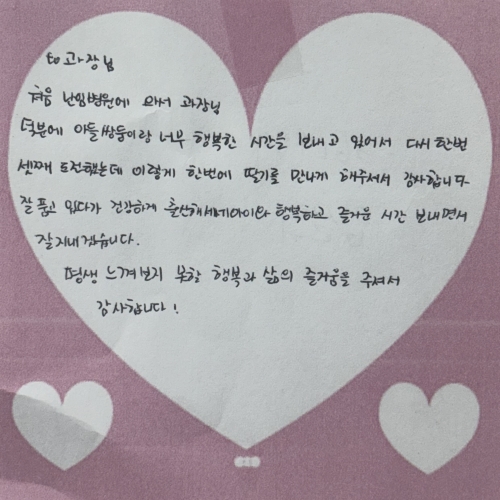 to 과장님
처음 난임병원에 와서 과장님
덕분에 아들쌍둥이랑 너무 행복한 시간을 보내고 있어서 다시한번
셋째 도전했는데 이렇게 한번에 딸기를 만나게 해주셔서 감사합니다
잘 품고 있다가 건강하게 출산해 세아이와 행복하고 즐거운 시간 보내면서
잘지내겠습니다.
평생 느껴보지 못할 행복과 삶의 즐거움을 주셔서
감사합니다!